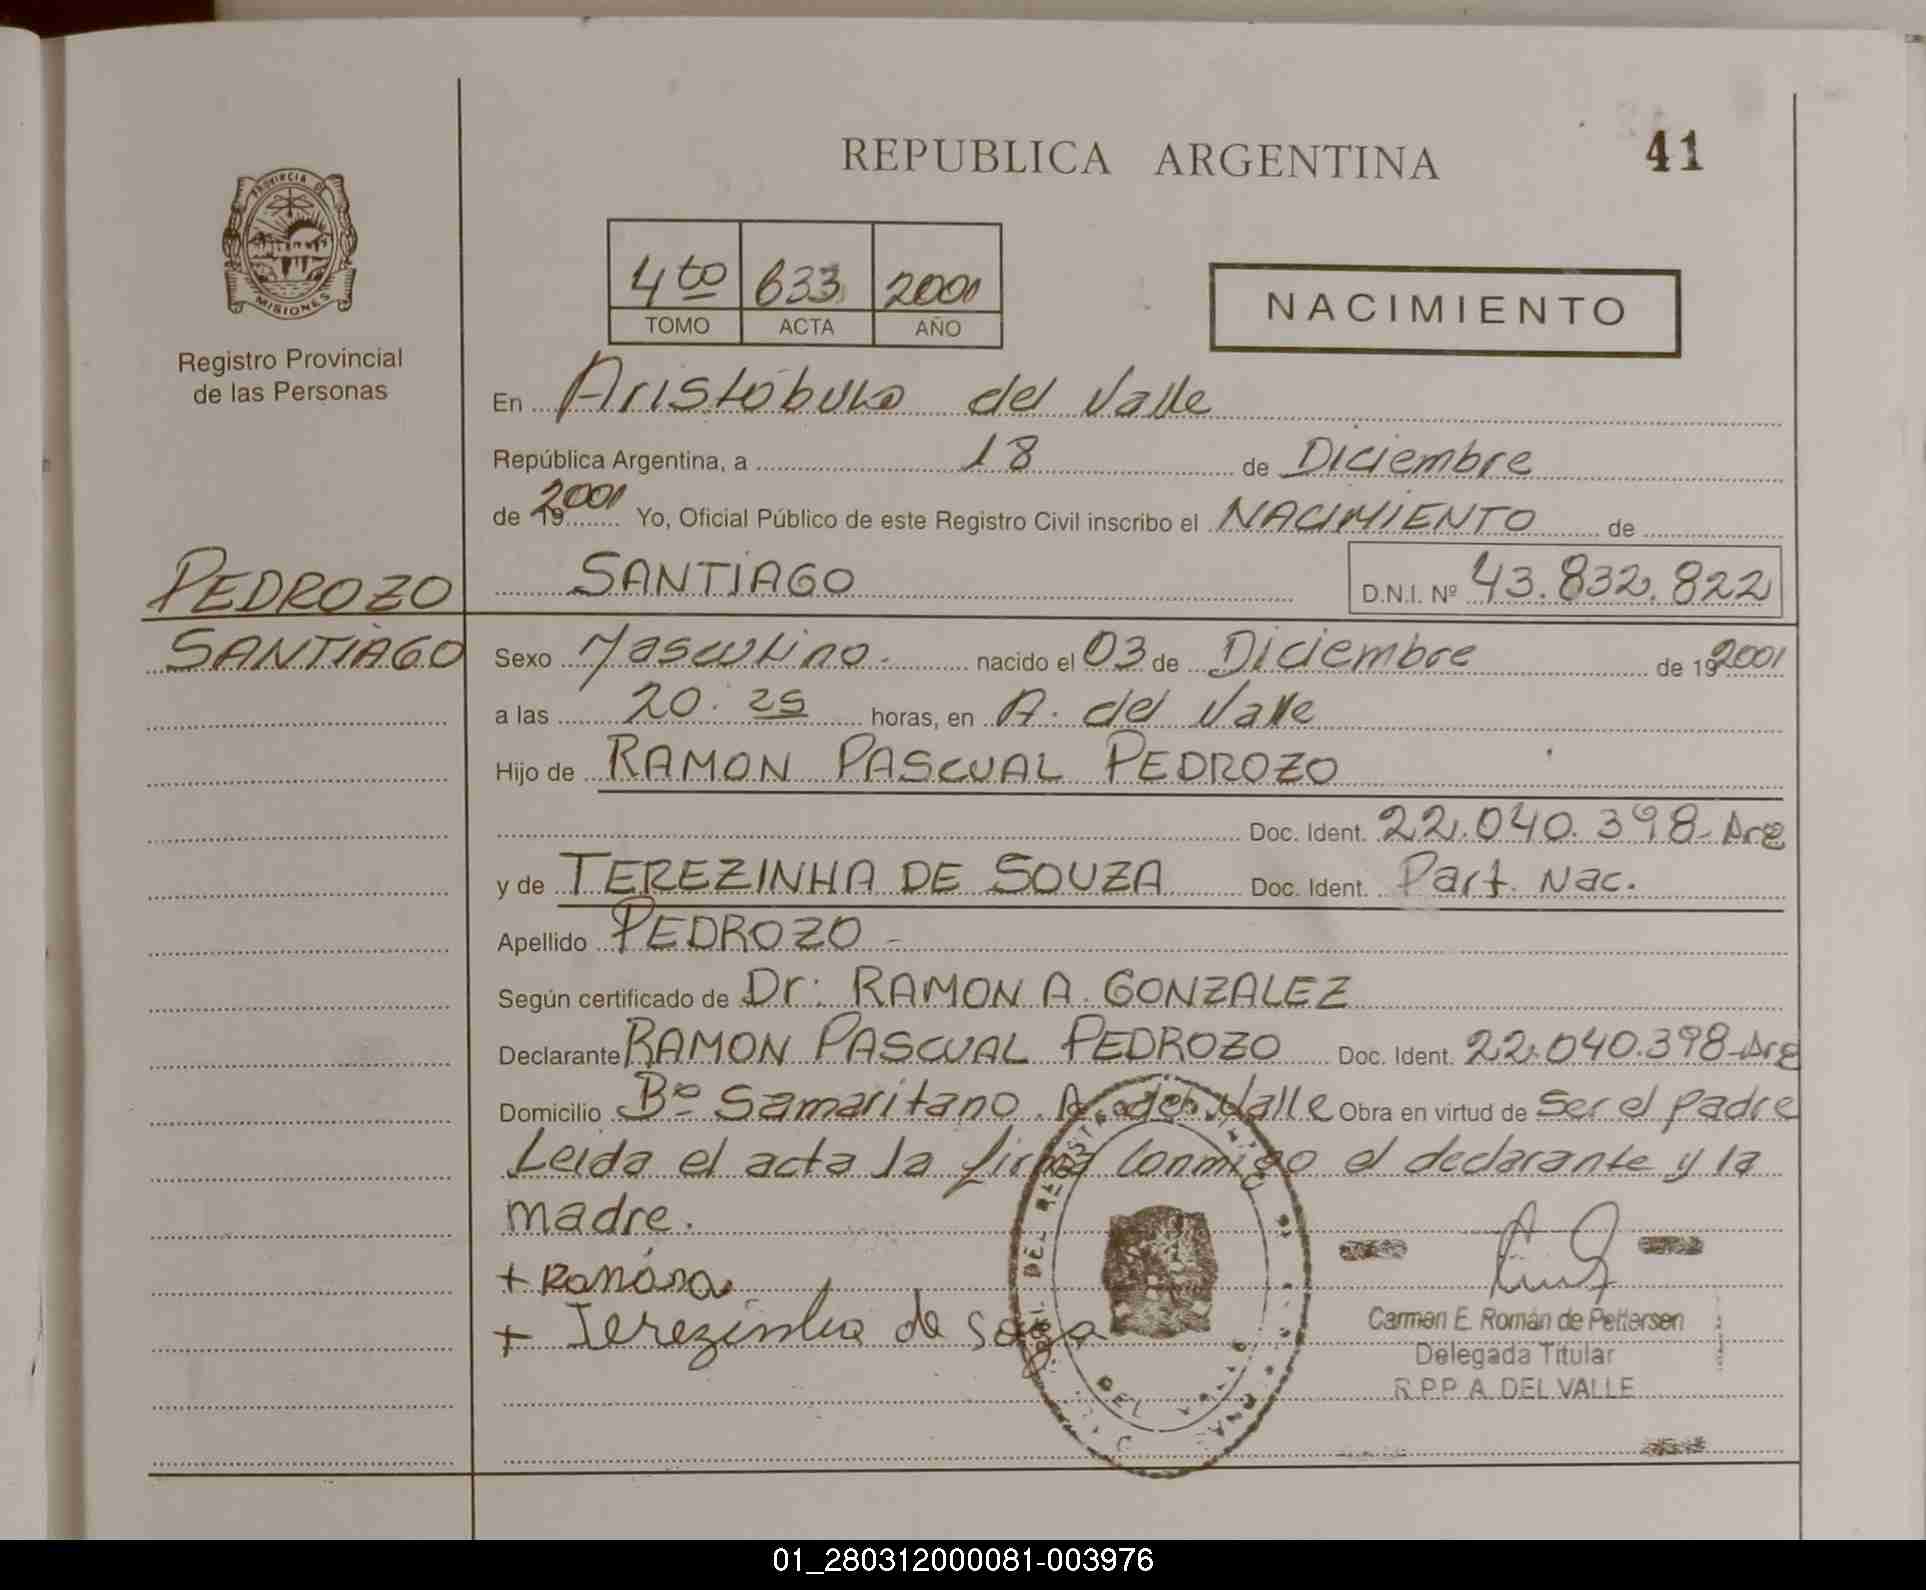 REPUBLICA ARGENTINA
41
PROVINCIA DE
MISIONES
Registro Provincial
de las Personas
4to 633 2001
TOMO ACTA AÑO
NACIMIENTO
En Aristóbulo del Valle
República Argentina, a 18 de Diciembre
de 19 2001 Yo, Oficial Público de este Registro Civil inscribo el NACIMIENTO de
PEDROZO
SANTIAGO
SANTIAGO D.N.I. Nº 43.832.822
Sexo Masculino. nacido el 03 de Diciembre de 19 2001
a las 20:25 horas, en A. del Valle
Hijo de RAMON PASCUAL PEDROZO
Doc. Ident. 22.040.398-Arg
y de TEREZINHA DE SOUZA Doc. Ident. Part. Nac.
Apellido PEDROZO -
Según certificado de Dr: RAMON A. GONZALEZ
Declarante RAMON PASCUAL PEDROZO Doc. Ident. 22.040.398-Arg
Domicilio Bº Samaritano. A. del Valle Obra en virtud de Ser el padre
Leida el acta la firma conmigo el declarante y la
madre.
+
+ Terezinha de
Carmen E. Román de Pettersen
Delegada Titular
R.P.P. A. DEL VALLE
DEL
01_280312000081-003976